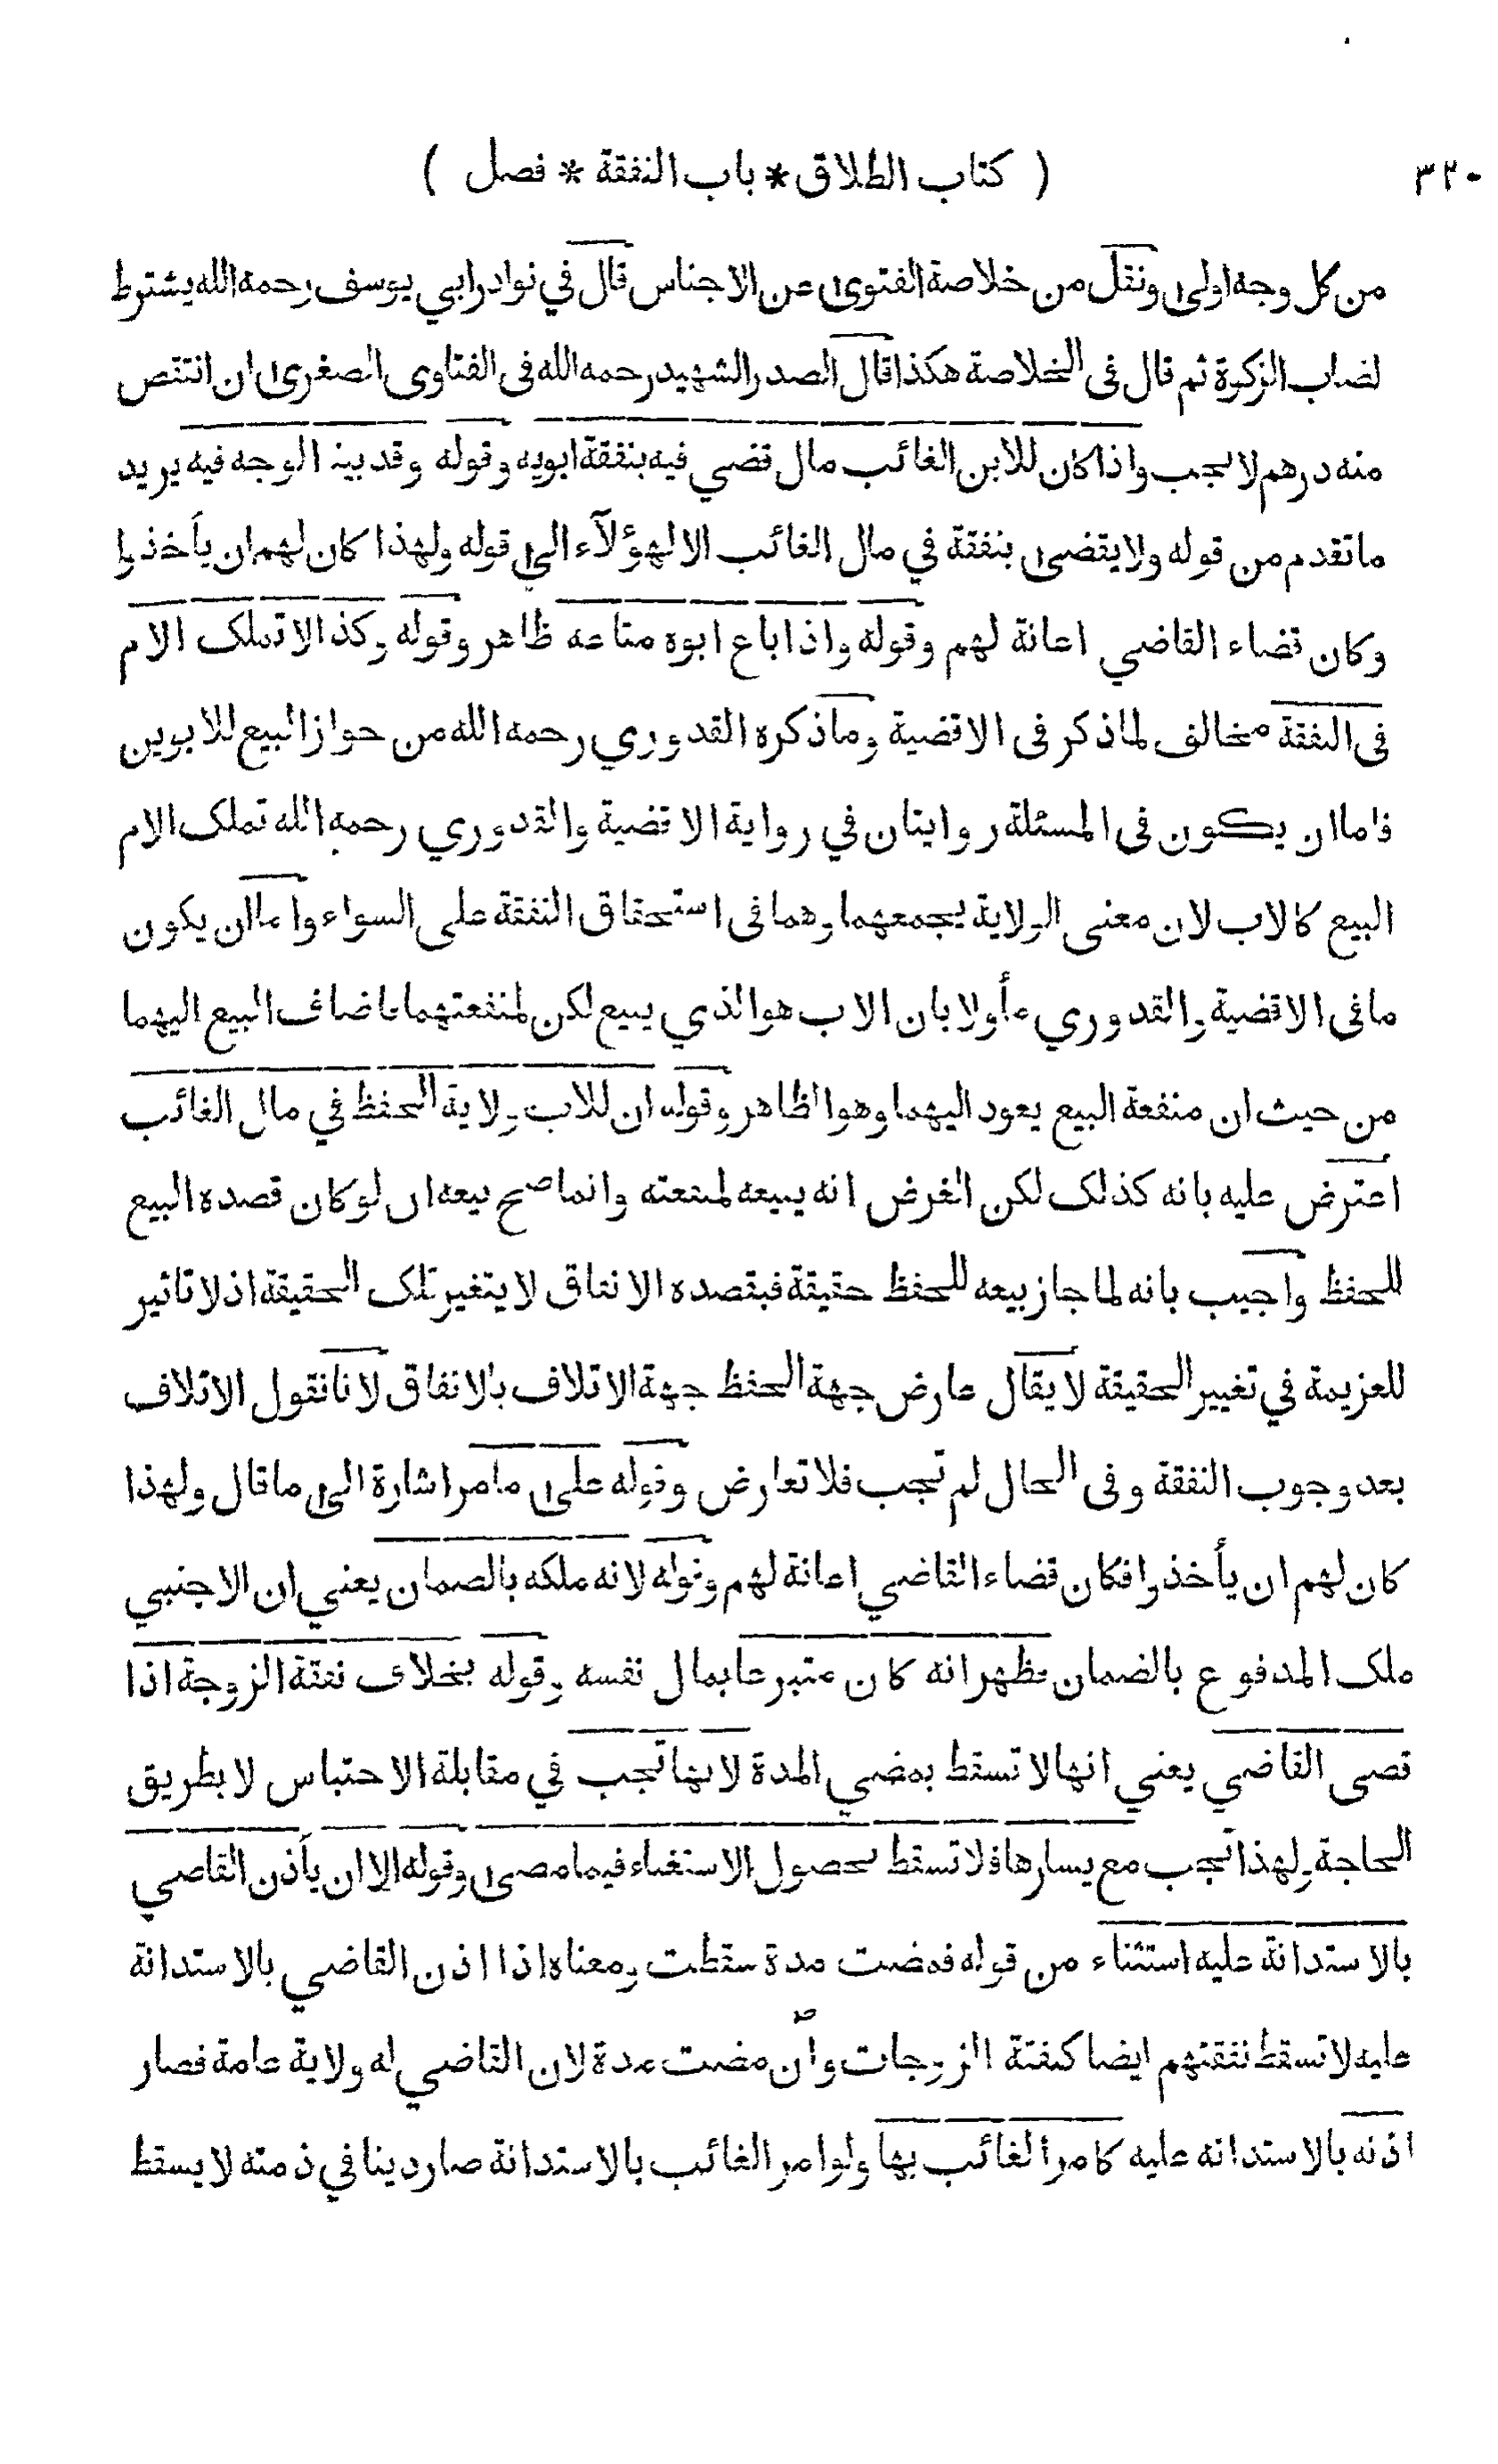 ( كتاب الطلاق * باب النفقة * فصل ) ٣٢٠
من كل وجه اولى ونقل من خلاصة الفتوى عن الاجناس قال في نوادر ابي يوسف رحمه الله يشترط
نصاب الزكوة ثم قال فى الخلاصة هكذا قال الصدر الشهيد رحمه الله فى الفتاوى الصغرى ان انتقص
منه درهم لا يجب واذا كان للابن الغائب مال قضي فيه بنفقة ابويه وقوله وقد بينا الوجه فيه يريد
ما تقدم من قوله ولا يقضى بنفقة في مال الغائب الا لهؤلآء الى قوله ولهذا كان لهم ان يأخذوا
وكان قضاء القاضي اعانة لهم وقوله واذا باع ابوه متاعه ظاهر وقوله وكذا لا تملك الام
فى النفقة مخالف لما ذكر فى الاقضية وما ذكره القدوري رحمه الله من جواز البيع للابوين
فاما ان يكون فى المسئلة روايتان في رواية الاقضية والقدوري رحمه الله تملك الام
البيع كالاب لان معنى الولاية يجمعهما وهما فى استحقاق النفقة على السواء واما ان يكون
ما فى الاقضية والقدوري مأولا بان الاب هو الذي يبيع لكن لمنفعتهما فاضاف البيع اليهما
من حيث ان منفعة البيع يعود اليهما وهو الظاهر وقوله ان للاب ولاية الحفظ في مال الغائب
اعترض عليه بانه كذلك لكن الغرض انه يبيعه لمنفعته وانما صح بيعه ان لو كان قصده البيع
للحفظ واجيب بانه لما جاز بيعه للحفظ حقيقة فبقصده الانفاق لا يتغير تلك الحقيقة اذ لا تاثير
للعزيمة في تغيير الحقيقة لا يقال عارض جهة الحفظ جهة الاتلاف بالانفاق لانا نقول الاتلاف
بعد وجوب النفقة وفى الحال لم تجب فلا تعارض وقوله على ما مر اشارة الى ما قال ولهذا
كان لهم ان يأخذوا فكان قضاء القاضي اعانة لهم وقوله لانه ملكه بالضمان يعني ان الاجنبي
ملك المدفوع بالضمان فظهر انه كان متبرعا بمال نفسه وقوله بخلاف نفقة الزوجة اذا
قضى القاضي يعني انها لا تسقط بمضي المدة لانها تجب في مقابلة الاحتباس لا بطريق
الحاجة ولهذا تجب مع يسارها فلا تسقط لحصول الاستغناء فيما مضى وقوله الا ان يأذن القاضي
بالاستدانة عليه استثناء من قوله فمضت مدة سقطت ومعناه اذا اذن القاضي بالاستدانة
عليه لا تسقط نفقتهم ايضا كنفقة الزوجات وان مضت مدة لان القاضي له ولاية عامة فصار
اذنه بالاستدانة عليه كامر الغائب بها ولو امر الغائب بالاستدانة صار دينا في ذمته لا يسقط